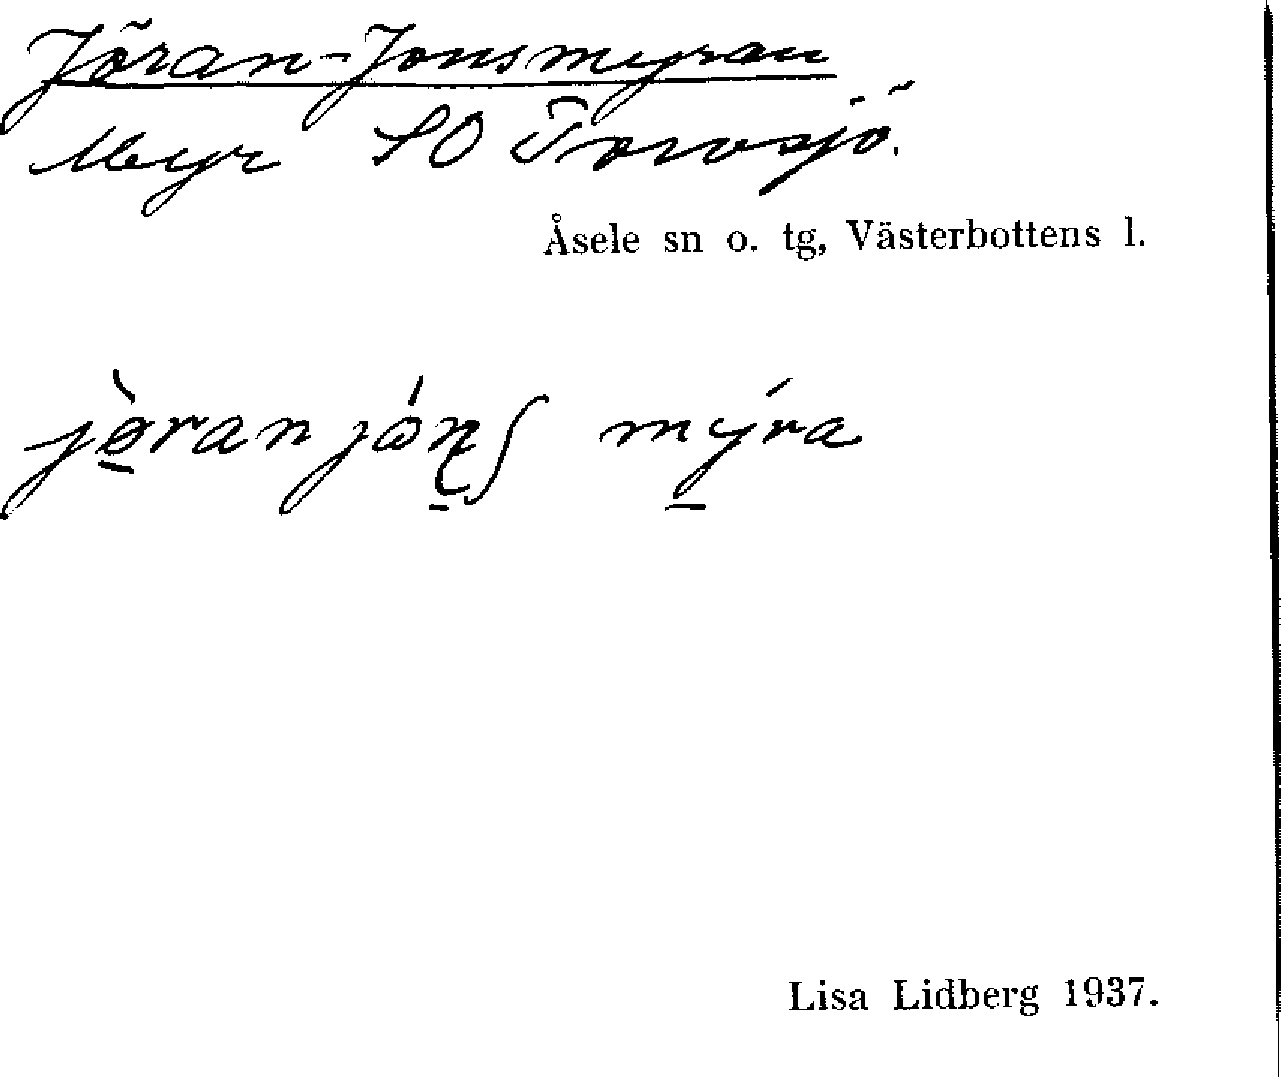 Jöran-Jonsmyran
Myr SO Torvsjö.
Åsele sn o. tg, Västerbottens l.
mýra
Lisa Lidberg 1937.